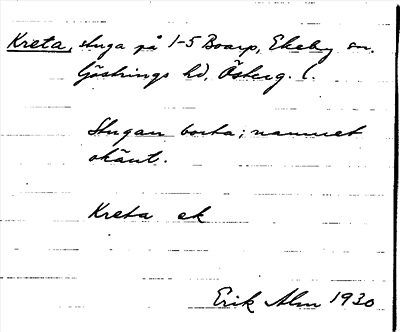 Kreta, stuga på 1-5 Boarp, Ekeby sn.
Göstrings hd, Österg. l.
Stugan borta; namnet
okänt.
Kreta ek
Erik Alm 1930